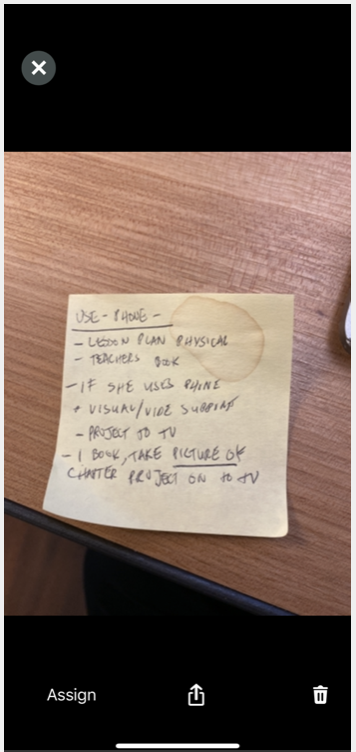 USE - PHONE -
- LESSON PLAN PHYSICAL
- TEACHERS BOOK
- IF SHE USES PHONE
+ VISUAL/VIDE SUPPORT
- PROJECT TO TV
- 1 BOOK, TAKE PICTURE OF
CHAPTER PROJECT ON TO TV
Assign